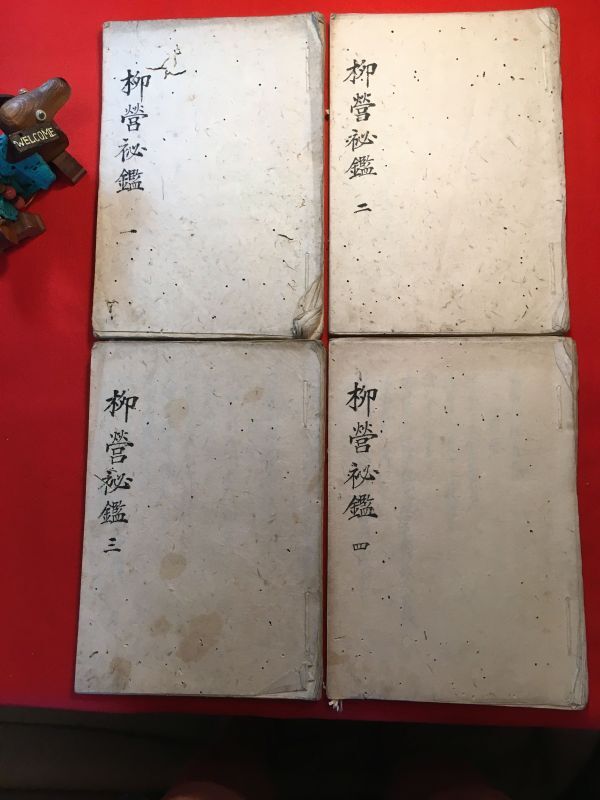 柳營祕鑑 一
柳營祕鑑 二
柳營祕鑑 三
柳營祕鑑 四
WELCOME